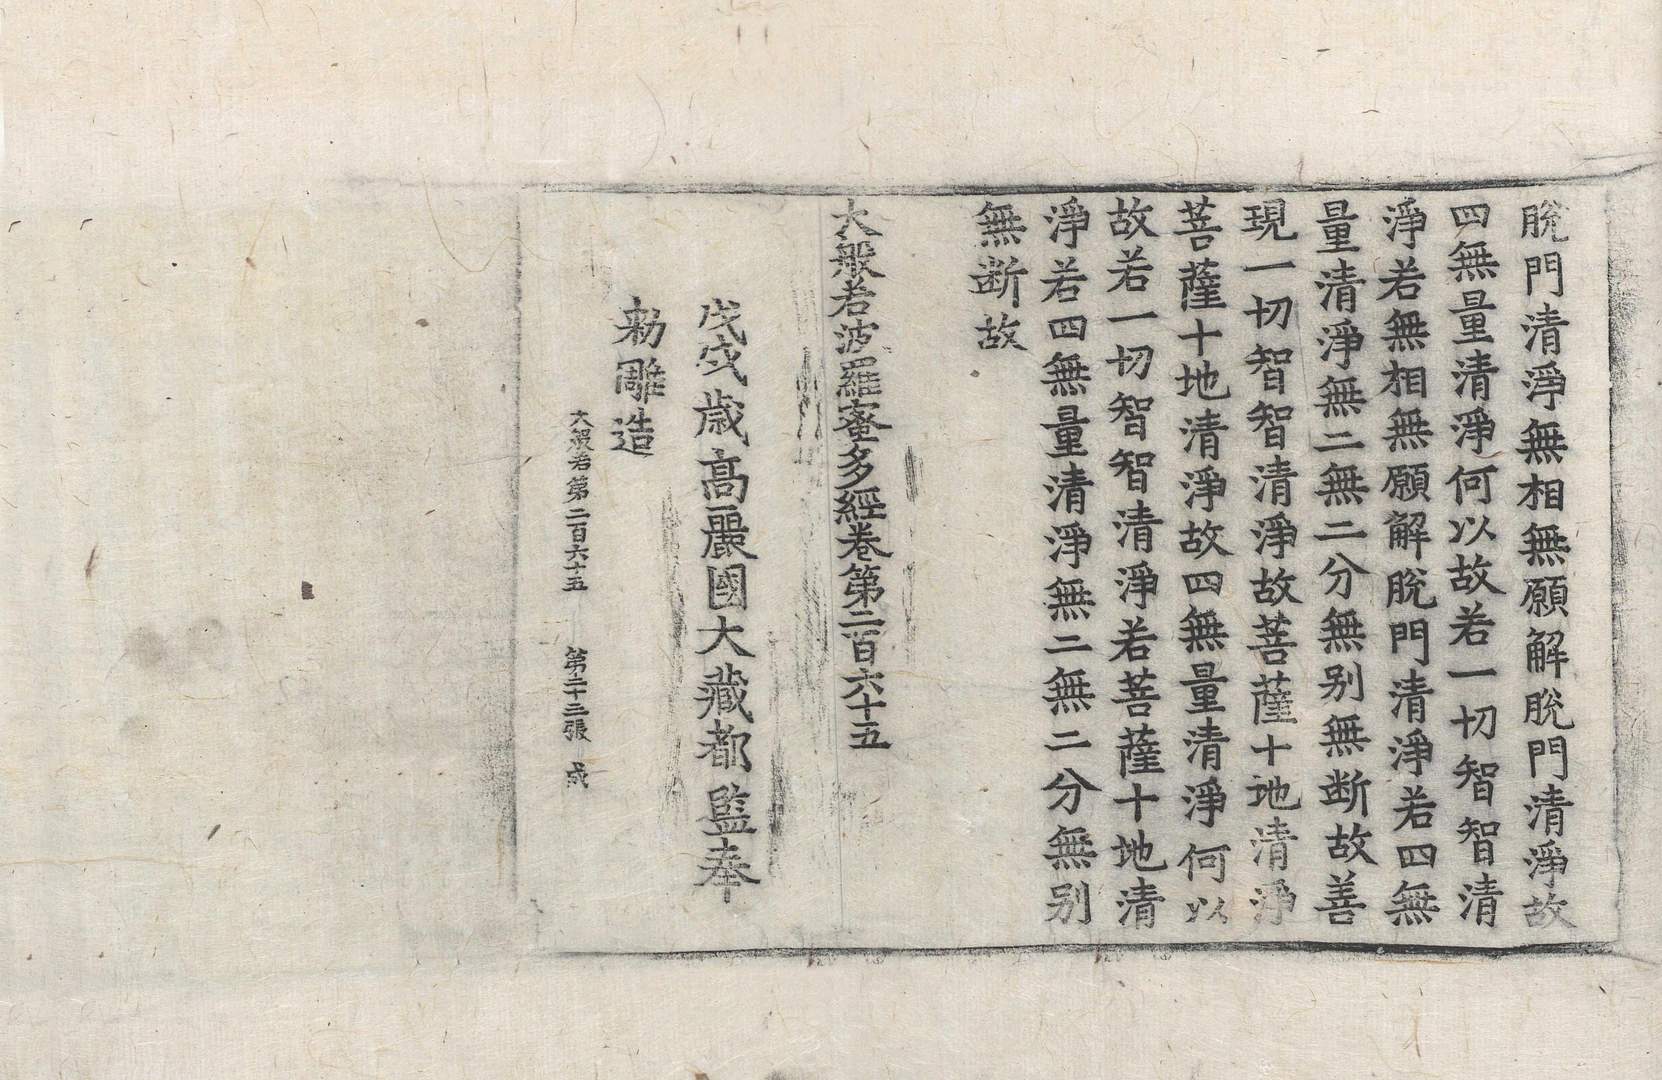 脫門清淨無相無願解脫門清淨故
四無量清淨何以故若一切智智清
淨若無相無願解脫門清淨若四無
量清淨無二無二分無別無断故善
現一切智智清淨故菩薩十地清淨
菩薩十地清淨故四無量清淨何以
故若一切智智清淨若菩薩十地清
淨若四無量清淨無二無二分無別
無断故
大般若波羅蜜多經卷第二百六十五
戊戌歲高麗國大藏都監奉
勑雕造
大般若第二百六十五 第二十三張 成